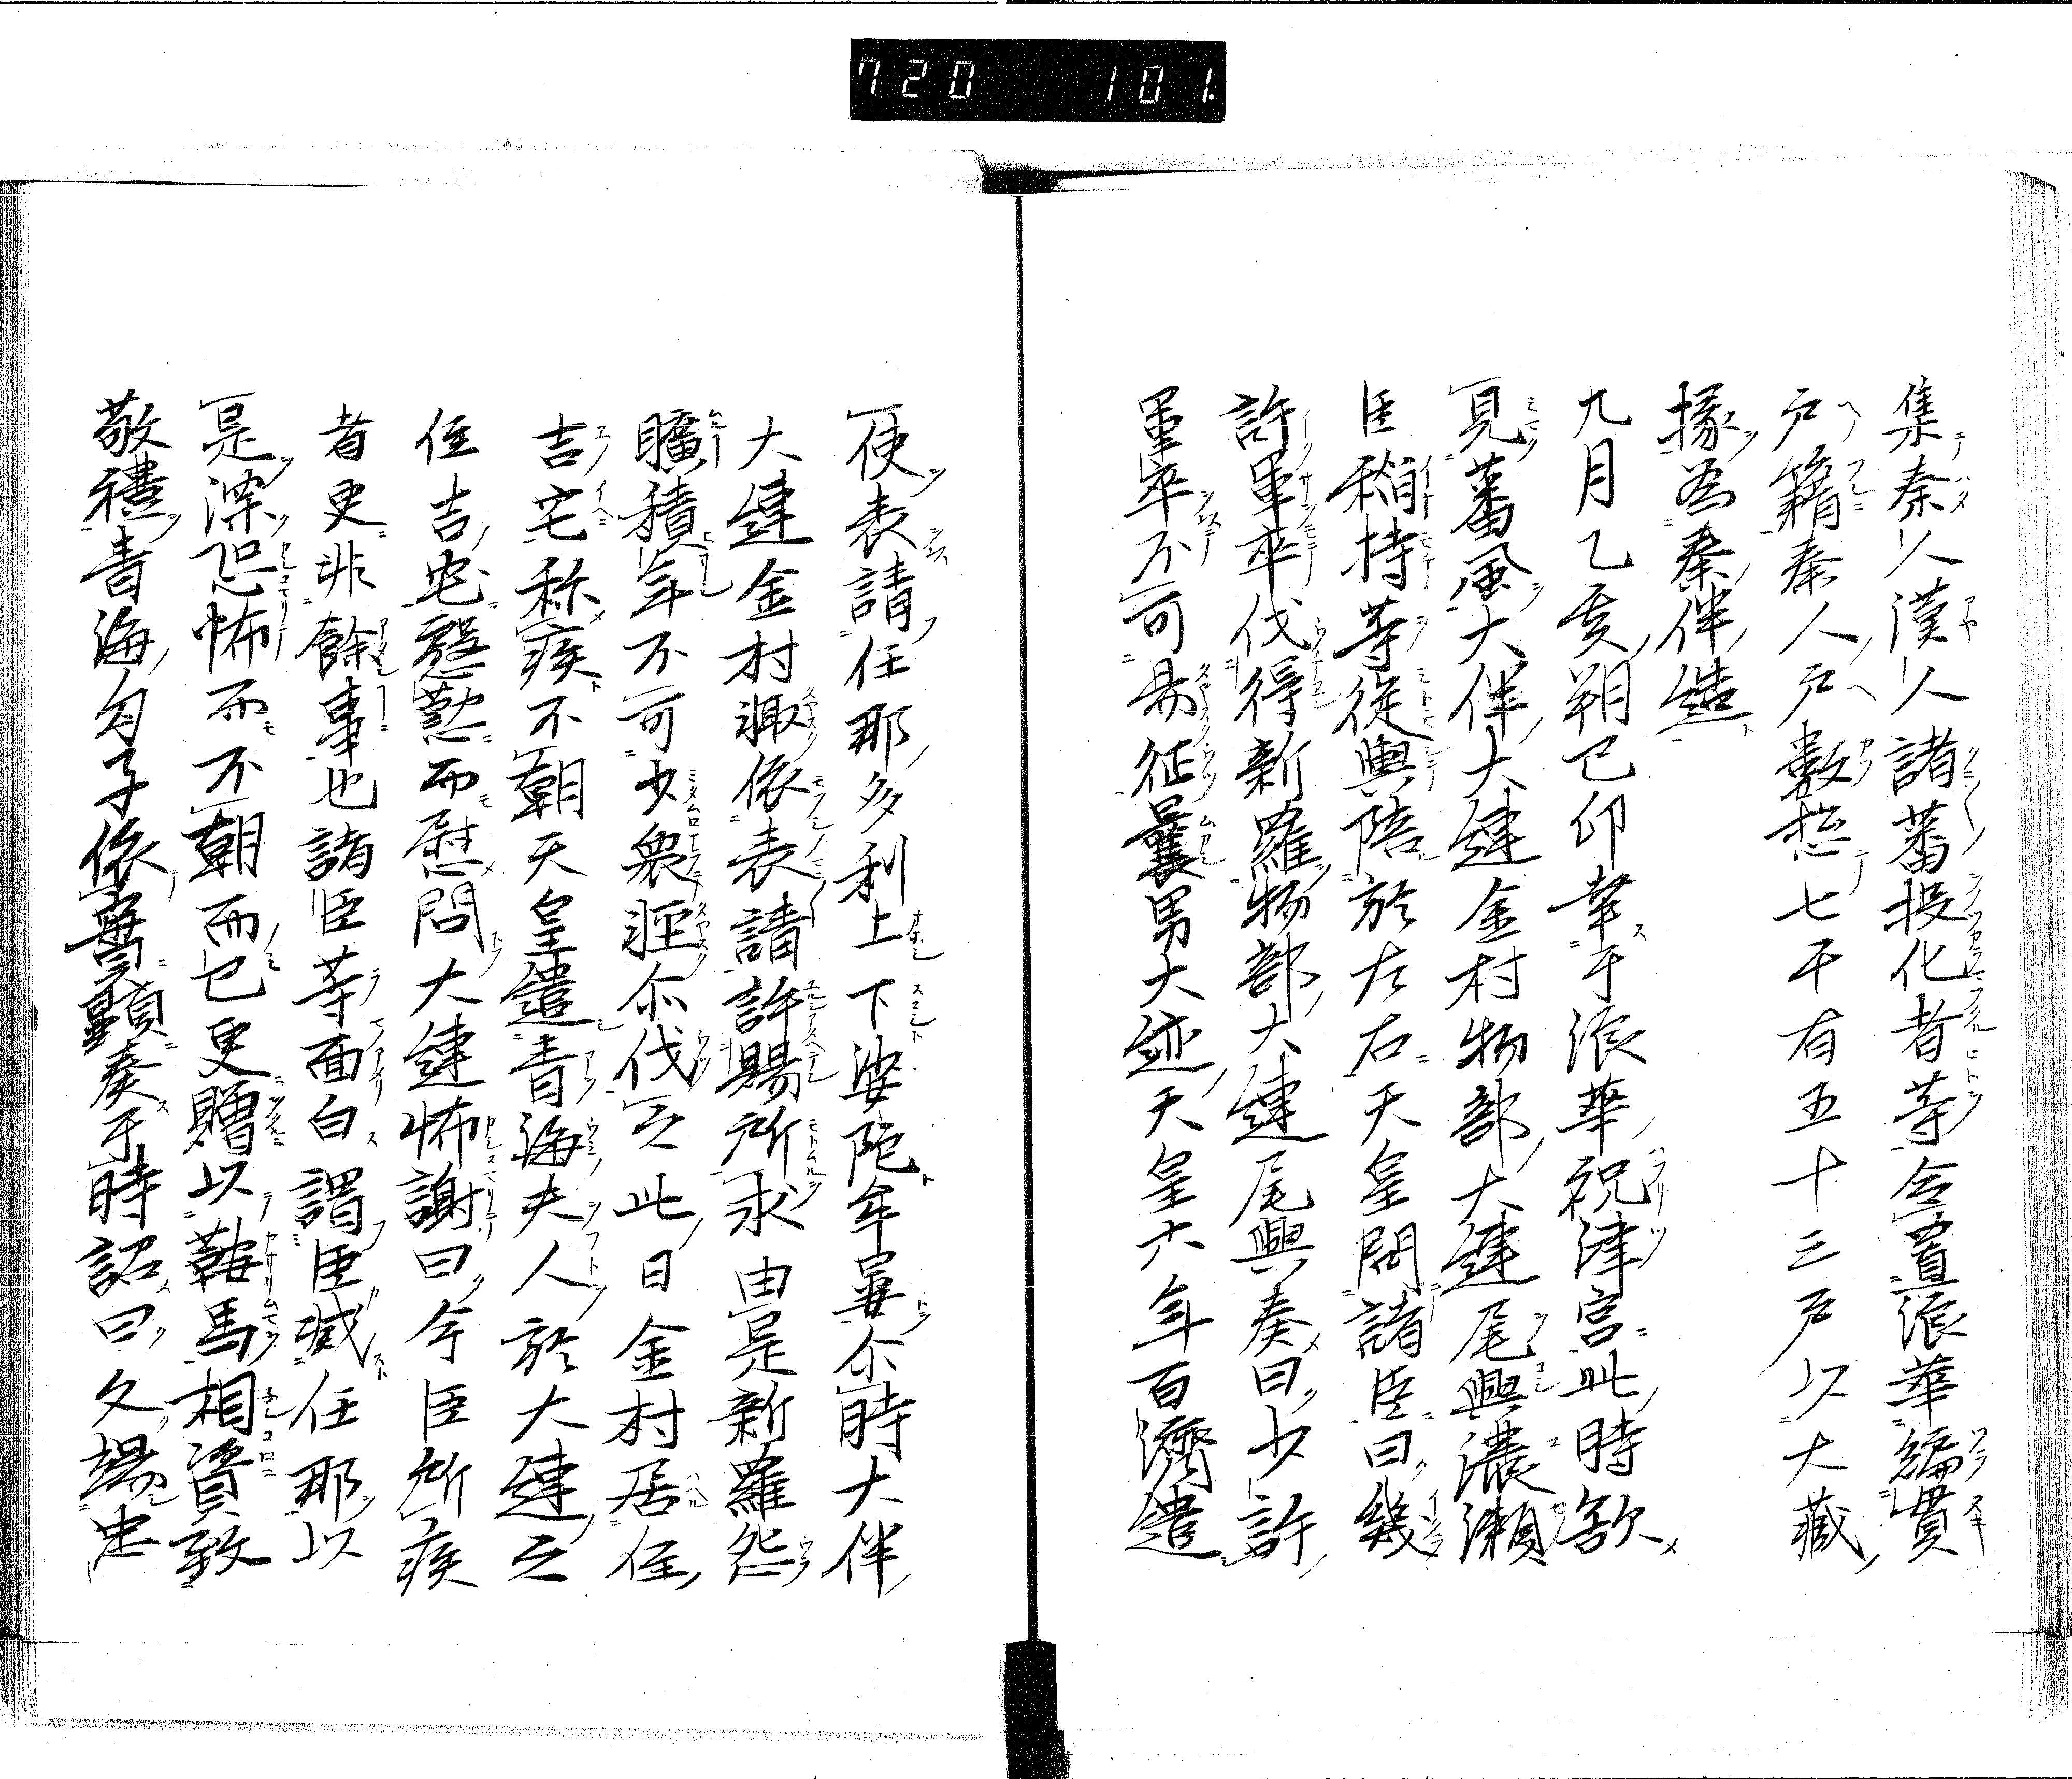 720 101
集秦人漢人諸蕃投化者等令置浪華編貫
戸籍秦人戸數惣七千有五十三戸以大藏
掾為秦伴造
九月乙亥朔已卯幸于浪華祝津宮此時欲
見蕃風大伴大連金村物部大連尾輿濃瀬
臣稲持等從輿陪於左右天皇問諸臣曰幾
許軍卒伐得新羅物部大連尾輿奏曰少許
軍卒不可易征曩男大迹天皇六年百濟遣
使表請任那多利上下娑陀牟婁尓時大伴
大連金村輙依表請許賜所求由是新羅怨
曠積年不可少衆輕尓伐之此日金村居住
吉宅称疾不朝天皇遣青海夫人於大連之
住吉宅慇懃而慰問大連怖謝曰今臣所疾
者更非餘事也諸臣等面白謂臣滅任那以
是深恐怖而不朝而已更贈以鞍馬相資致
敬禮青海勾子依實顕奏于時詔曰久竭忠